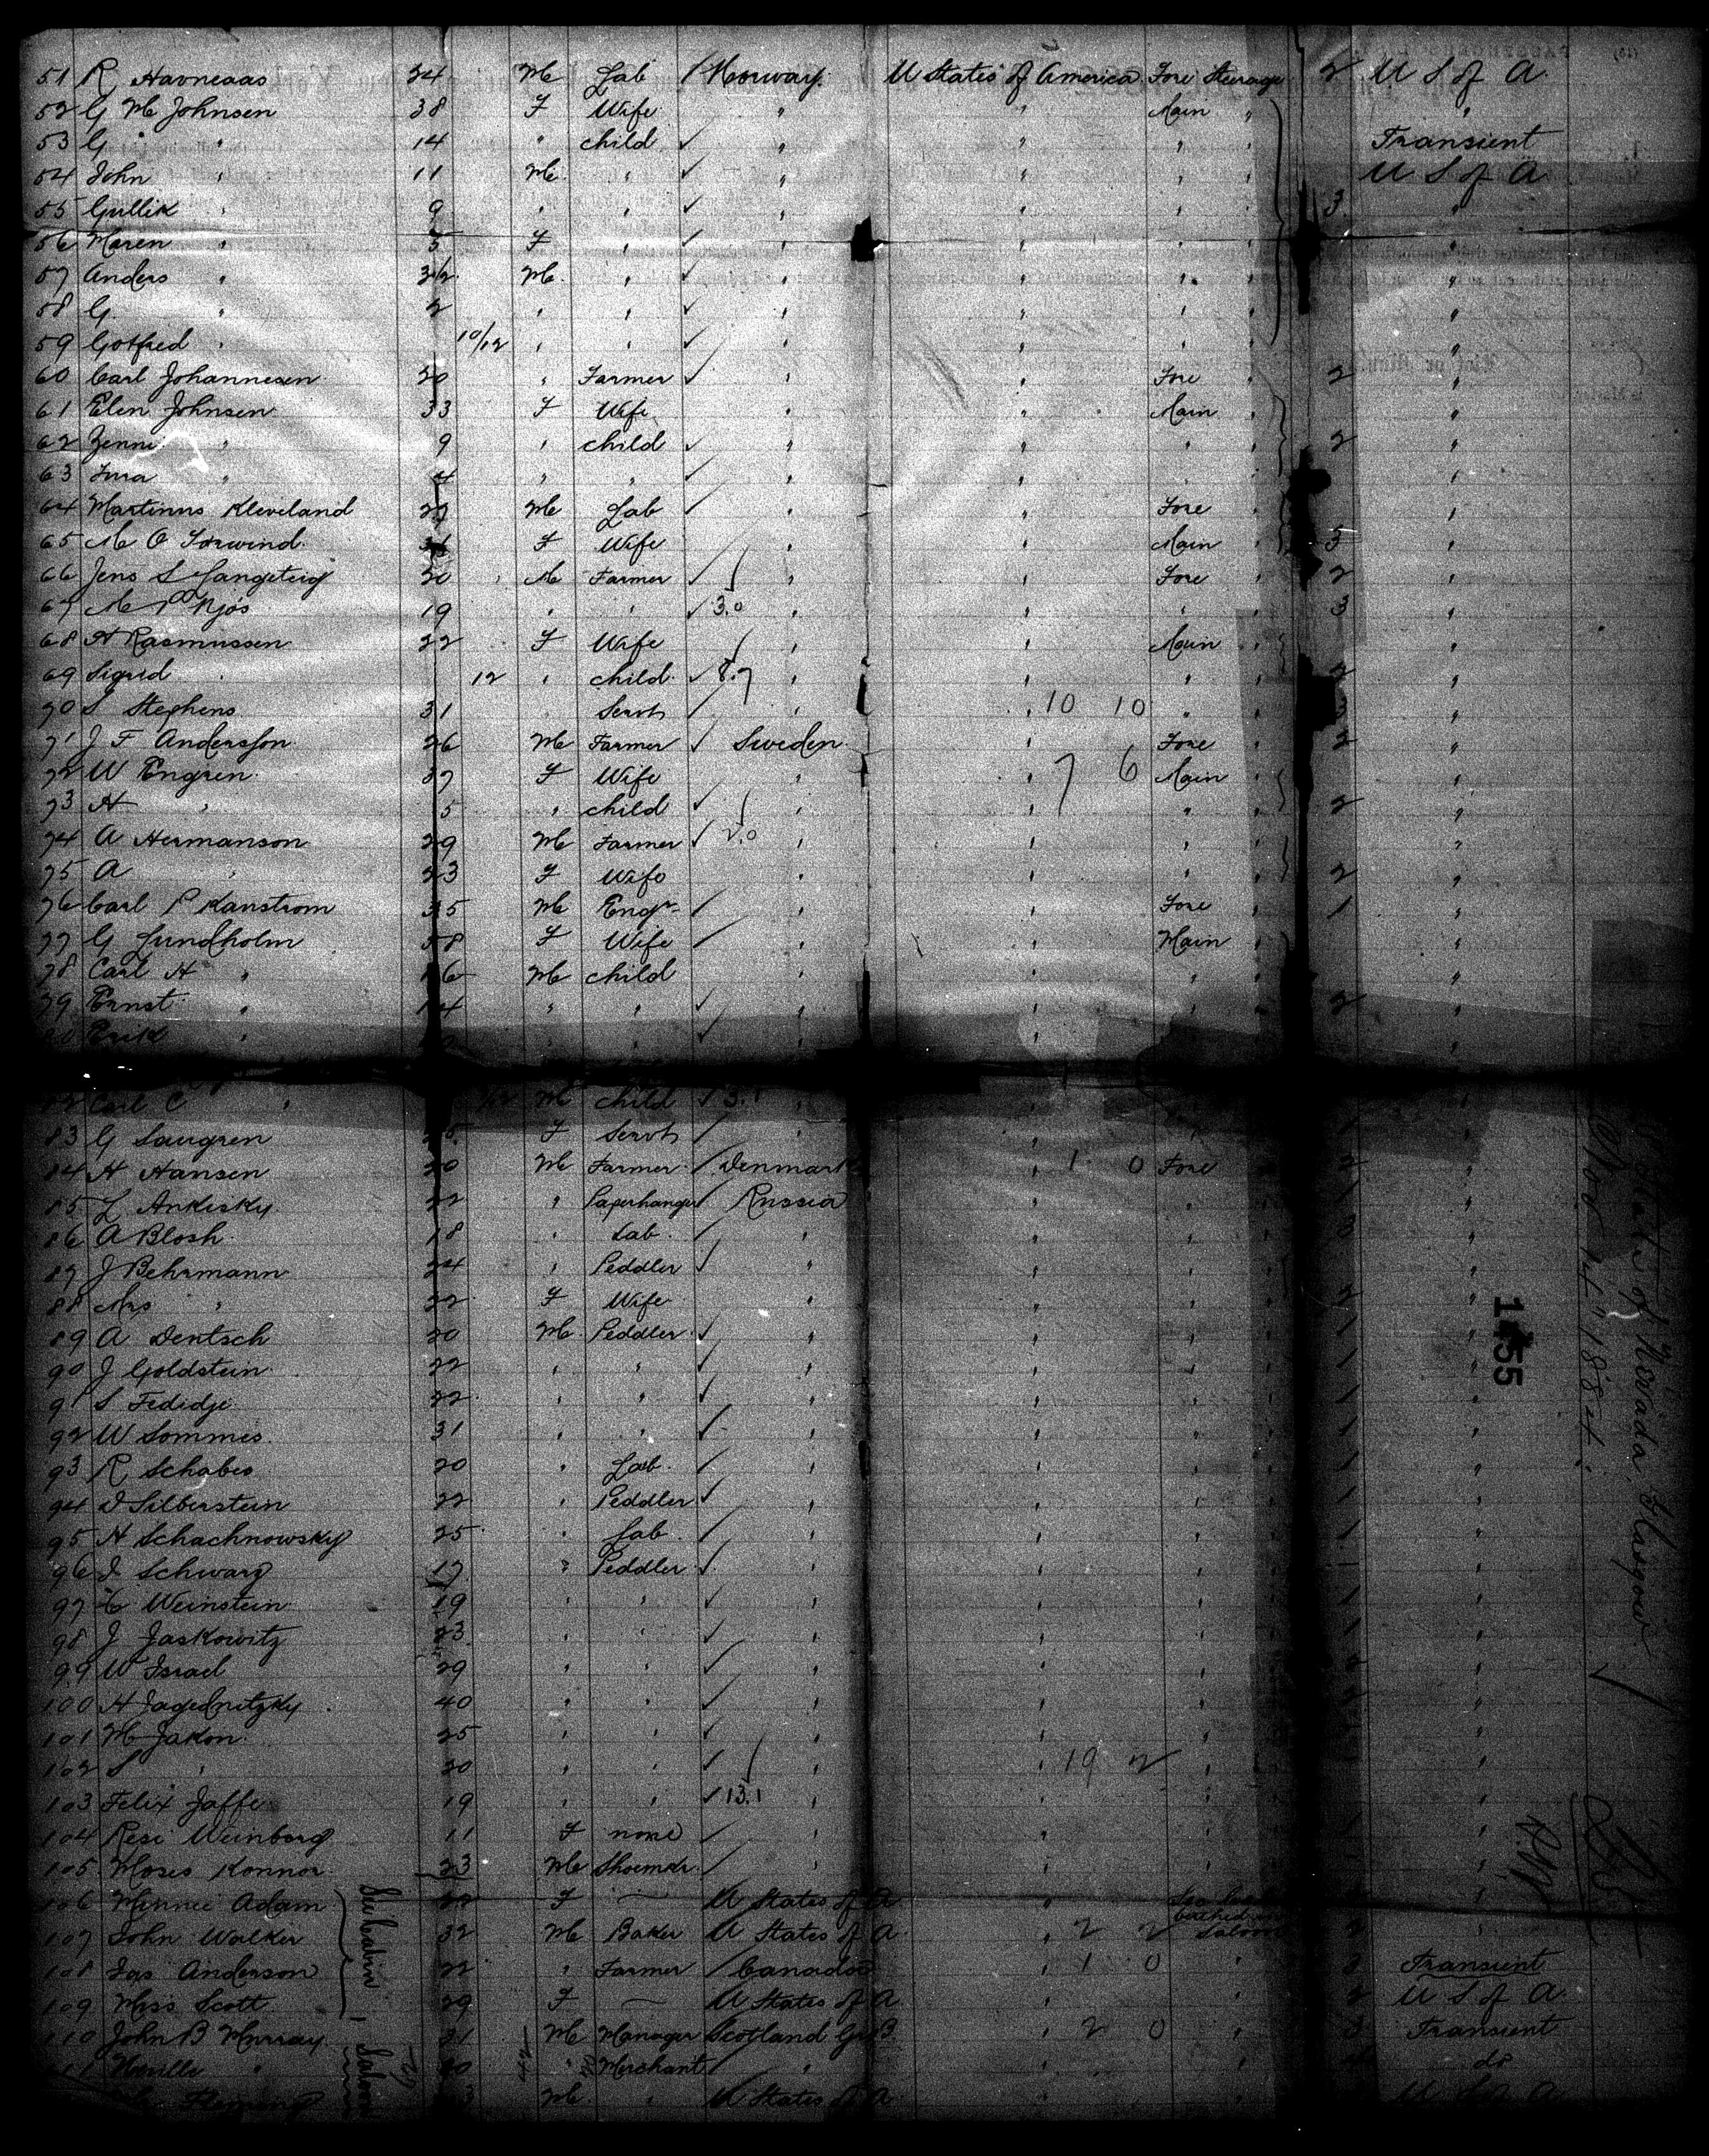 51 R Havneaas 24 M Lab / Norway U States of America Fore Steerage 2 U S of A
52 G M Johnsen 38 F Wife " " Main " "
53 G " 14 " child ✓ " " " " Transient
54 John " 11 M " ✓ " " " " U S of A
55 Gullik " 9 " " ✓ " " " " 3 "
56 Maren " 5 F " ✓ " " " " "
57 Anders " 3 1/2 M " ✓ " " " " "
58 G " 2 " " ✓ " " " " "
59 Gotfred " 10/12 " " ✓ " " " " "
60 Carl Johannesen 20 " Farmer ✓ " " Fore " 2 "
61 Elen Johnsen 33 F Wife " " Main " "
62 Zenni " 9 " child ✓ " " " " 2 "
63 Ima " 4 " " ✓ " " " " "
64 Martinus Kleveland 27 M Lab / " " Fore " "
65 M O F Wife " " Main " 3 "
66 Jens S 20 " M Farmer ✓ " " Fore " 2 "
67 M Njós 19 " " ✓ 3.0 " " " " 3 "
68 A Rasmussen 22 F Wife " " Main " "
69 Sigrid " 12 " child ✓ 8.7 " " " " 2 "
70 S Stephens 31 " Servt / " " 10 10 " " "
71 J F Andersson 26 M Farmer ✓ Sweden " Fore " 2 "
72 W Engren 37 F Wife " " 7 6 Main " "
73 A " 5 " child ✓ " " " " 2 "
74 A Hermanson 29 M Farmer ✓ 2.0 " " " " "
75 A " 23 F Wife " " " " 2 "
76 Carl P Kanstrom 35 M Engr / " " Fore " 1 "
77 G Lundholm 58 F Wife / " " Main " "
78 Carl A " 16 M child " " " " "
79 Ernst " 14 " " ✓ " " " " 2 "
80 Erik " " " ✓ " " " " "
82 Carl C " /12 M child ✓ 3.1 " "
83 G Saugren 25 F Servt / " " " " 1 "
84 H Hansen 20 M Farmer / Denmark " 1 0 Fore " 2 "
85 L Ankisky 22 " Paperhanger / Russia " " " 1 "
86 A Blosh 18 " Lab / " " " " 3 "
87 J Behrmann 24 " Peddler ✓ " " " " "
88 Mrs " 22 F Wife " " " " 2 "
89 A Dentsch 20 M Peddler ✓ " " " " 1 "
90 J Goldstein 22 " " ✓ " " " " 1 "
91 S Fedidje 22 " " ✓ " " " " 1 "
92 W Sommes 31 " " ✓ " " " " 1 "
93 R Schabes 20 " Lab / " " " " 1 "
94 D Silberstein 22 " Peddler ✓ " " " " 1 "
95 H Schachnowsky 25 " Lab / " " " " 1 "
96 I Schwarz 17 " Peddler ✓ " " " " 1 "
97 Weinstein 19 " " ✓ " " " " 1 "
98 J Jaskowitz 23 " " ✓ " " " " 1 "
99 W Israel 29 " " ✓ " " " " 2 "
100 H 40 " " ✓ " " " " 2 "
101 M Jakon 25 " " ✓ " " " " "
102 S " 20 " " ✓ " " 19 2 " " "
103 Felix Jaffe 19 " " ✓ 13.1 " " " " "
104 Resi Weinberg 11 F none / " " " " 1 "
105 Moses Konnor 23 M Shoemkr / " " " " 1 "
106 Minnie Adam F — U States of A " "
107 John Walker 32 M Baker U States of A " 2 2 Saloon 2 "
108 Jas Anderson 22 " Farmer / Canada " 1 0 " 3 Transient
109 Miss Scott 29 F — U States of A " " 2 U S of A
110 John B Murray 31 M Manager Scotland Gr B " 2 0 " 3 Transient
111 Neville " 20 " Merchant / " " " do
Fleming M " U States of A " U S of A
Saloon
State of Nevada, Glasgow
Nov 1st 1884
1455